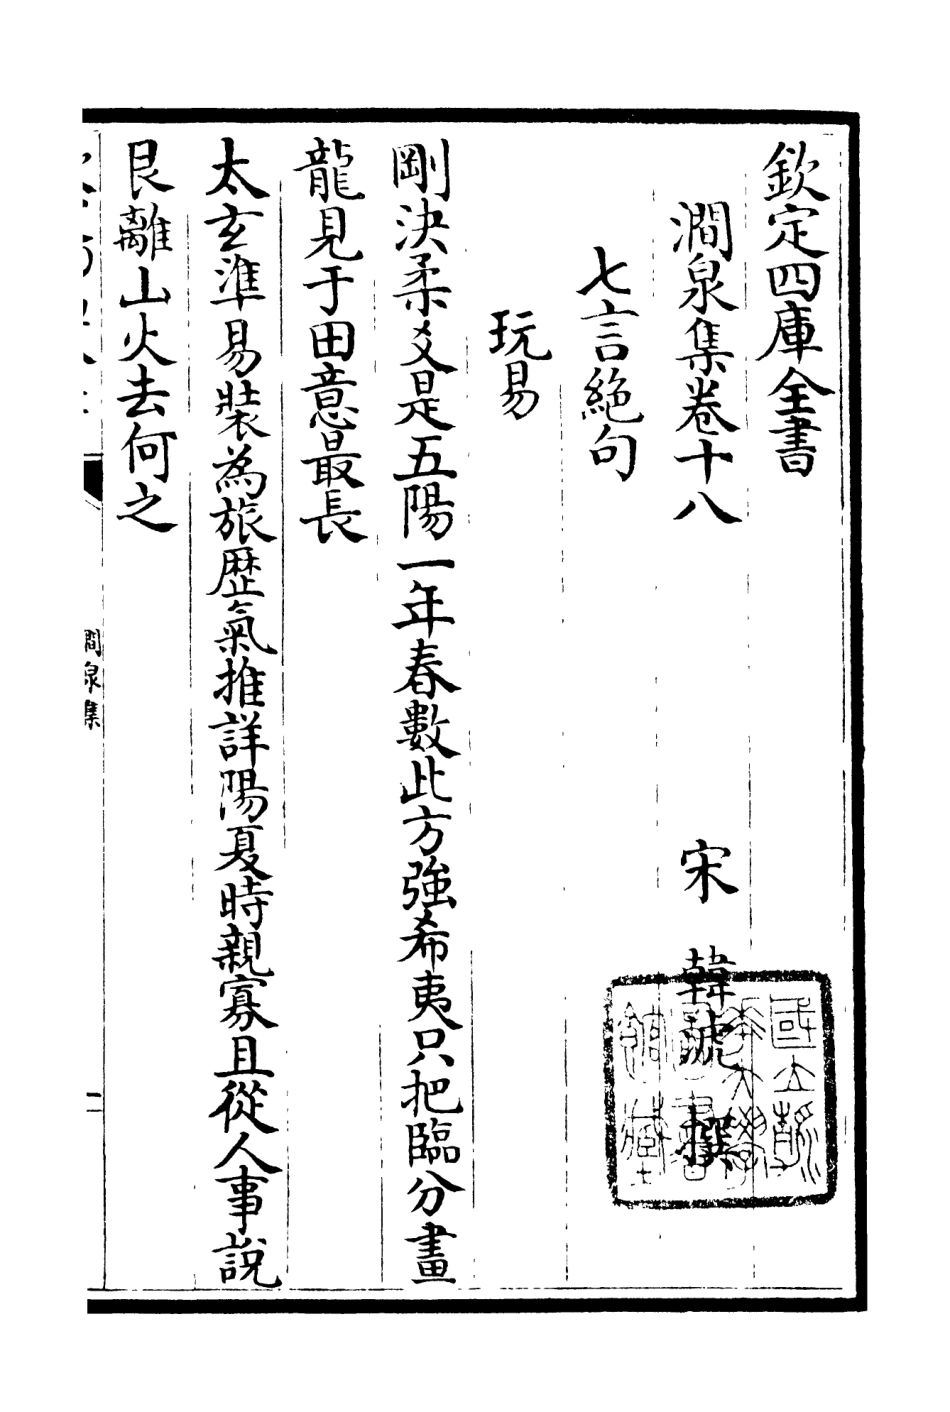 欽定四庫全書
澗泉集卷十八
宋 韓淲 撰
七言絶句
玩易
剛決柔爻是五陽一年春數此方強希夷只把臨分畫
龍見于田意最長
太玄準易裝為旅歴氣推詳陽夏時親寡且從人事說
艮離山火去何之
澗泉集
一